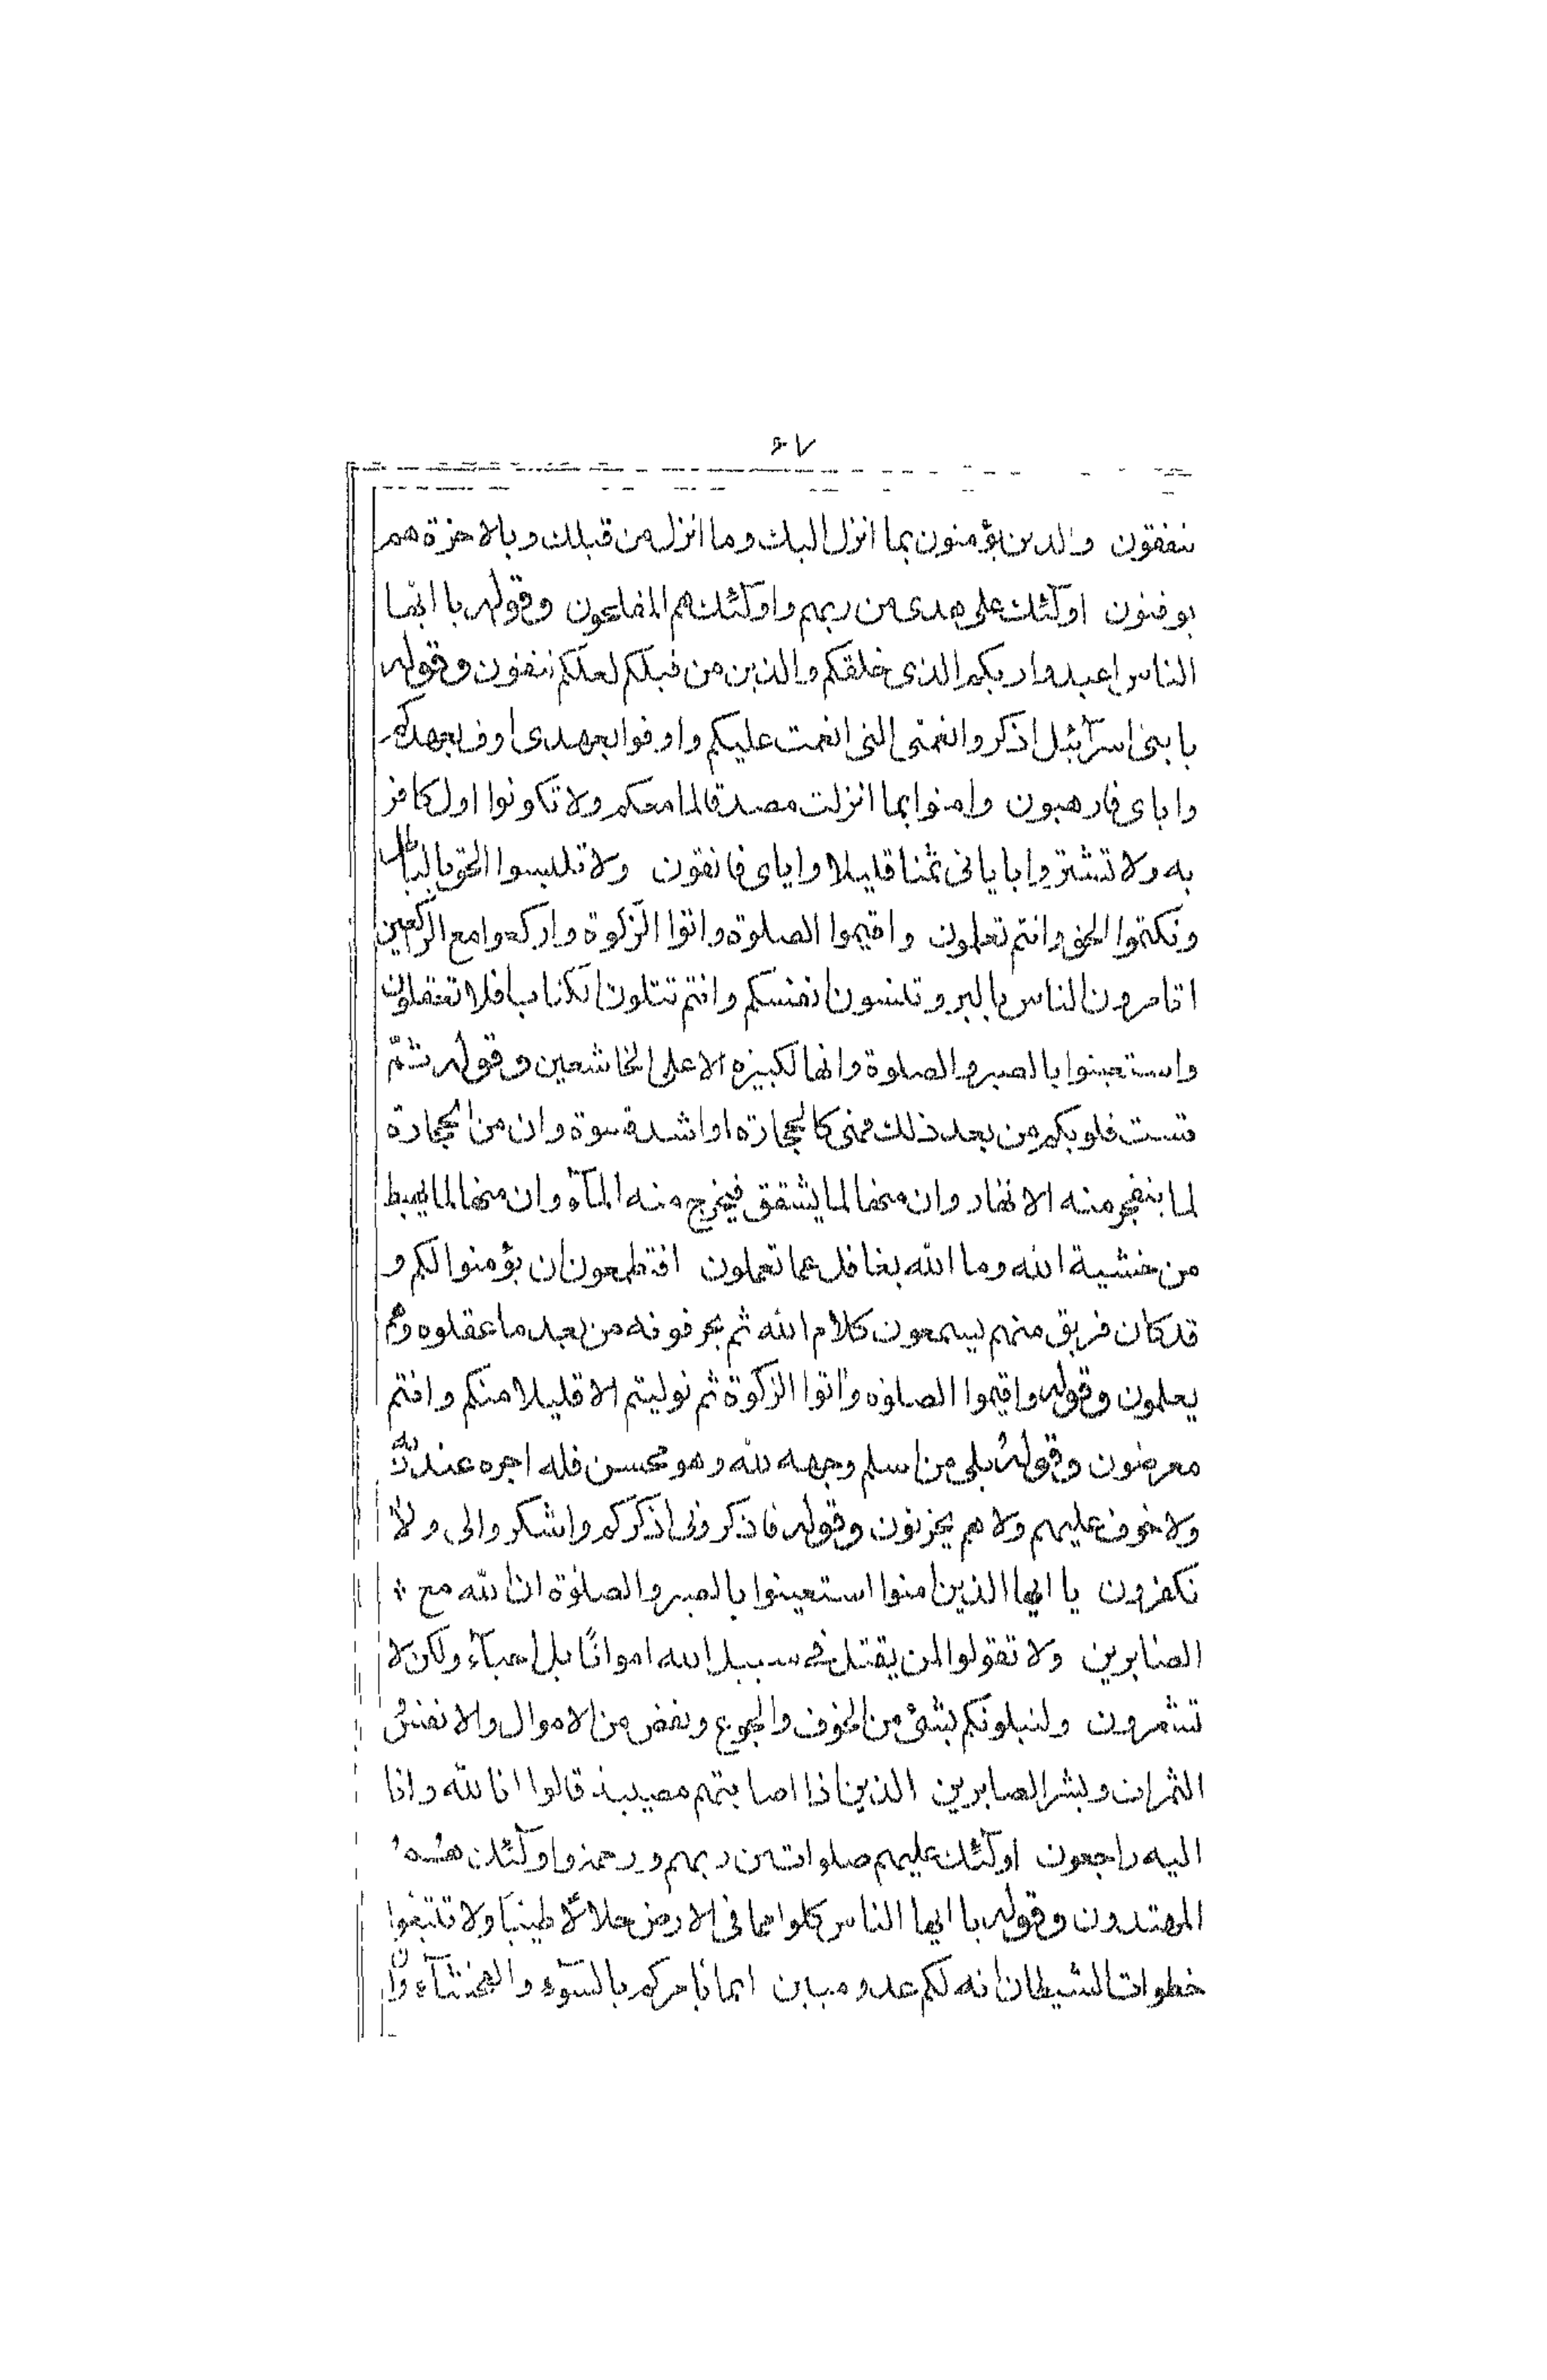 ۶۷
ینفقون والذین یؤمنون بما انزل الیك وما انزل من قبلك وبالاخرة هم
یوقنون اولٓئك علی هدی من ربهم واولٓئك هم المفلحون وقوله یا ایها
الناس اعبدوا ربکم الذی خلقکم والذین من قبلکم لعلکم تتقون وقوله
یا بنی اسرآئیل اذکروا نعمتی التی انعمت علیکم واوفوا بعهدی اوف بعهدکم
وایای فارهبون وامنوا بما انزلت مصدقا لما معکم ولا تکونوا اول کافر
به ولا تشتروا بایاتی ثمنا قلیلا وایای فاتقون ولا تلبسوا الحق بالباطل
وتکتموا الحق وانتم تعلمون واقیموا الصلوة واتوا الزکوة وارکعوا مع الراکعین
اتامرون الناس بالبر وتنسون انفسکم وانتم تتلون الکتاب افلا تعقلون
واستعینوا بالصبر والصلوة وانها لکبیرة الا علی الخاشعین وقوله ثمّ
قست قلوبکم من بعد ذلك فهی کالحجارة او اشد قسوة وان من الحجارة
لما یتفجر منه الانهار وان منها لما یشقق فیخرج منه المآء وان منها لما یهبط
من خشیة الله وما الله بغافل عما تعملون افتطمعون ان یؤمنوا لکم و
قد کان فریق منهم یسمعون کلام الله ثم یحرفونه من بعد ما عقلوه وهم
یعلمون وقوله واقیموا الصلوة وآتوا الزکوة ثم تولیتم الا قلیلا منکم وانتم
معرضون وقوله بلی من اسلم وجهه لله وهو محسن فله اجره عند ربّه
ولا خوف علیهم ولا هم یحزنون وقوله فاذکرونی اذکرکم واشکروا لی ولا
تکفرون یا ایها الذین امنوا استعینوا بالصبر والصلوة ان الله مع
الصابرین ولا تقولوا لمن یقتل فی سبیل الله امواتًا بل احیآء ولکن لا
تشعرون ولنبلونکم بشئ من الخوف والجوع ونقص من الاموال والانفس و
الثمرات وبشر الصابرین الذین اذا اصابتهم مصیبة قالوا انا لله وانا
الیه راجعون اولٓئك علیهم صلوات من ربهم ورحمة واولٓئك هم
المهتدون وقوله یا ایها الناس کلوا مما فی الارض حلالًا طیبًا ولا تتبعوا
خطوات الشیطان انه لکم عدو مبین انما یامرکم بالسّوٓء والفحشآء وان